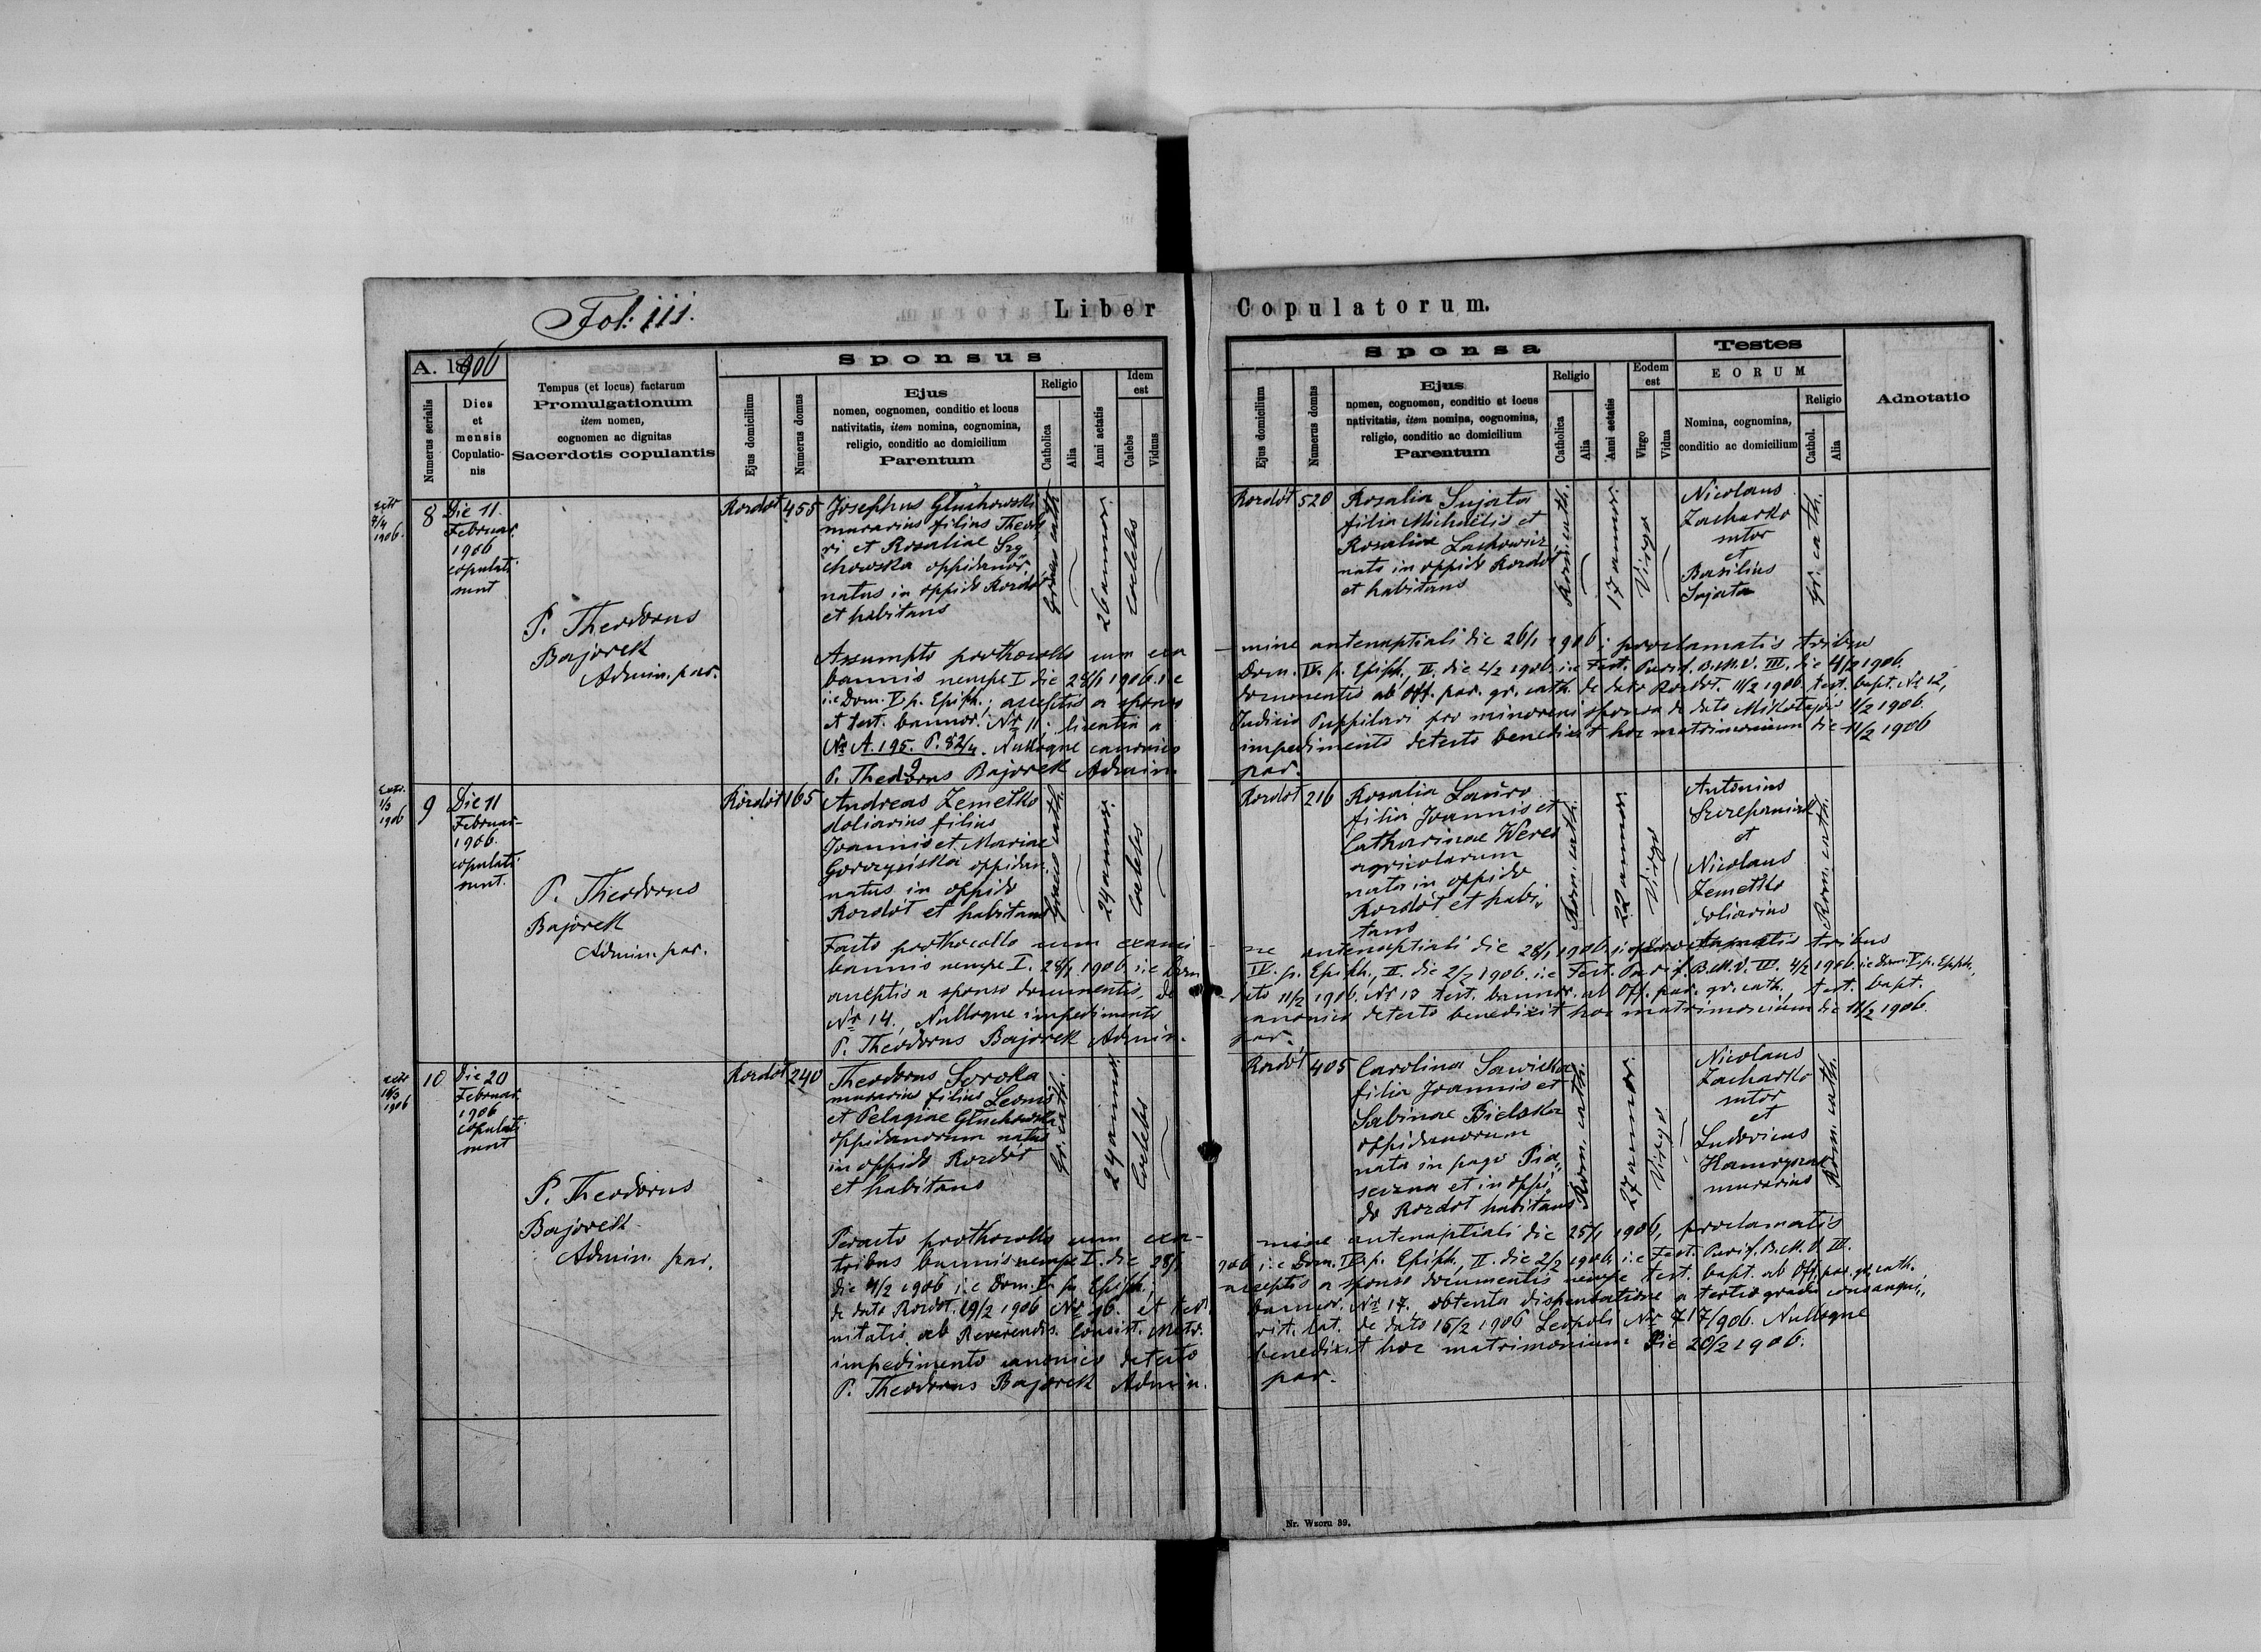 Fol: 111.
Liber Copulatorum.
A. 1906
Numerus serialis
Dies
et
mensis
Copulatio-
nis
Tempus (et locus) factarum
Promulgationum
item nomen,
cognomen ac dignitas
Sacerdotis copulantis
Sponsus
Ejus domicilium
Numerus domus
Ejus
nomen, cognomen, conditio et locus
nativitatis, item nomina, cognomina,
religio, conditio ac domicilium
Parentum
Religio
Catholica
Alia
Anni aetatis
Idem
est
Calebs
Viduus
Sponsa
Ejus domicilium
Numerus domus
Ejus
nomen, cognomen, conditio et locus
nativitatis, item nomina, cognomina,
religio, conditio ac domicilium
Parentum
Religio
Catholica
Alia
Anni aetatis
Eodem
est
Virgo
Vidua
Testes
EORUM
Nomina, cognomina,
conditio ac domicilium
Religio
Cathol.
Alia
Adnotatio
1906.
8
Die 11.
Februar.
1906
copulati
sunt
P. Theodorus
Bajorek
Admin. par.
Rozdół
455
Josephus Głuchowski
murarius filius Theodo
ri et Rosaliae
chowska oppidanor
natus in oppido Rozdół
et habitans
Graeco cath
26 annor.
Coelebs
Rozdół
520
Rosalia Sujata
filia Michaëlis et
Rosaliae Lachowicz
nata in oppido Rozdół
et habitans
Rom. cath.
17 annor.
Virgo
Nicolaus
Zacharko
sutor
et
Basilius
Sujata
Gr. cath.
Assumpto prothocollo cum exa
mine antenuptiali die 26/1 1906; proclamatis tribus
bannis nempe I die 28/1 1906. i.e
Dom. IV. p. Epiph., II. die 2/2 1906. i.e Fest. Purif. B.M.V. III. die 4/2 1906.
i.e Dom. V p. Epiph.; acceptis a sponso
documentis ab Off. par. gr. cath. de dato Rozdół. 11/2 1906 test. bapt. Nr 12,
et test. bannor. Nr 11. licentia a
Judicio Puppilari pro minorenni sponsa de dato Mikołajów 1/2 1906.
Nr A. 195. P. 82/4. Nulloque canonico
impedimento detecto benedixit hoc matrimonium die 11/2 1906
P. Theodorus Bajorek Admin.
par.
Extr.
1/3
1906
9
Die 11
Februar-
1906.
copulati
sunt.
P. Theodorus
Bajorek
Admin. par.
Rozdół
165
Andreas Zemełko
doliarius filius
Joannis et Mariae
Gorczyńska oppidan.
natus in oppido
Rozdół et habitans
Graeco cath.
24 annor.
Coelebs
Rozdół
216
Rosalia Lauro
filia Joannis et
Catharinae Weres
agricolarum
nata in oppido
Rozdół et habi
tans
Rom. cath.
22 annor.
Virgo
Antonius
Szczepaniak
et
Nicolaus
Zemełko
doliarius
Rom. cath.
Facto prothocollo cum exami
ne antenuptiali die 28/1 1906 tribus
bannis nempe I. 28/1 1906. i.e Dom
IV. p. Epiph., II. die 2/2 1906. i.e Fest. Purif. B.M.V. III. 4/2 1906. i.e Dom. V. p. Epiph.
acceptis a sponso documentis, de
dato 11/2 1906. Nr 13 test. bannor. ab Off. par. gr. cath., test. bapt.
Nr 14., Nulloque impedimento
canonico detecto benedixit hoc matrimonium die 11/2 1906.
P. Theodorus Bajorek Admin.
par.
1906
10
Die 20
Februar.
1906
copulati
sunt
P. Theodorus
Bajorek
Admin. par.
Rozdół
240
Theodorus Soroka
murarius filius Leonis
et Pelagiae Głuchowska
oppidanorum natus
in oppido Rozdół
et habitans
Gr. cath.
24 annor.
Coelebs
Rozdół
405
Carolina Sawicka
filia Joannis et
Sabinae Bielska
oppidanorum
nata in pago Pia
seczna et in oppi
do Rozdół habitans
Rom. cath.
27 annor.
Virgo
Nicolaus
Zacharko
sutor
et
Ludovicus
murarius
Rom. cath.
Peracto prothocollo cum exa-
mine antenuptiali die 25/1 1906, proclamatis
tribus bannis nempe I. die 28/1
906 i.e Dom. IV. p. Epiph., II. die 2/2 1906. i.e Fest. Purif. B.M.V. III.
die 4/2 1906 i.e Dom. V p. Epiph.;
acceptis a sponso documentis nempe test. bapt. ab Off. par. gr. cath.
de dato Rozdół. 19/2 1906 Nr 16. et test
bannor. Nr 17. obtenta dispensatione a tertio gradu consangui,
nitatis ab Reverendis. Consist. Metr.
rit. lat. de dato 15/2 1906 Leopoli Nr 717/906. Nulloque
impedimento canonico detecto
benedixit hoc matrimonium die 20/2 1906.
P. Theodorus Bajorek Admin.
par.
Nr. Wzoru 39.